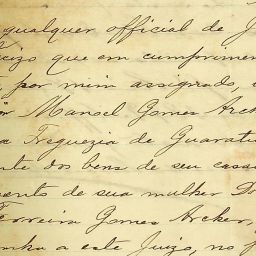 qualquer official de J
Juizo que em cumprimen
, por mim assignado,
Manoel Gomes Arch
a Freguezia de Guaratu
nte dos bens de seu casa
mento de sua mulher Do
Ferreira Gomes Archer,
enha a este Juizo, no p